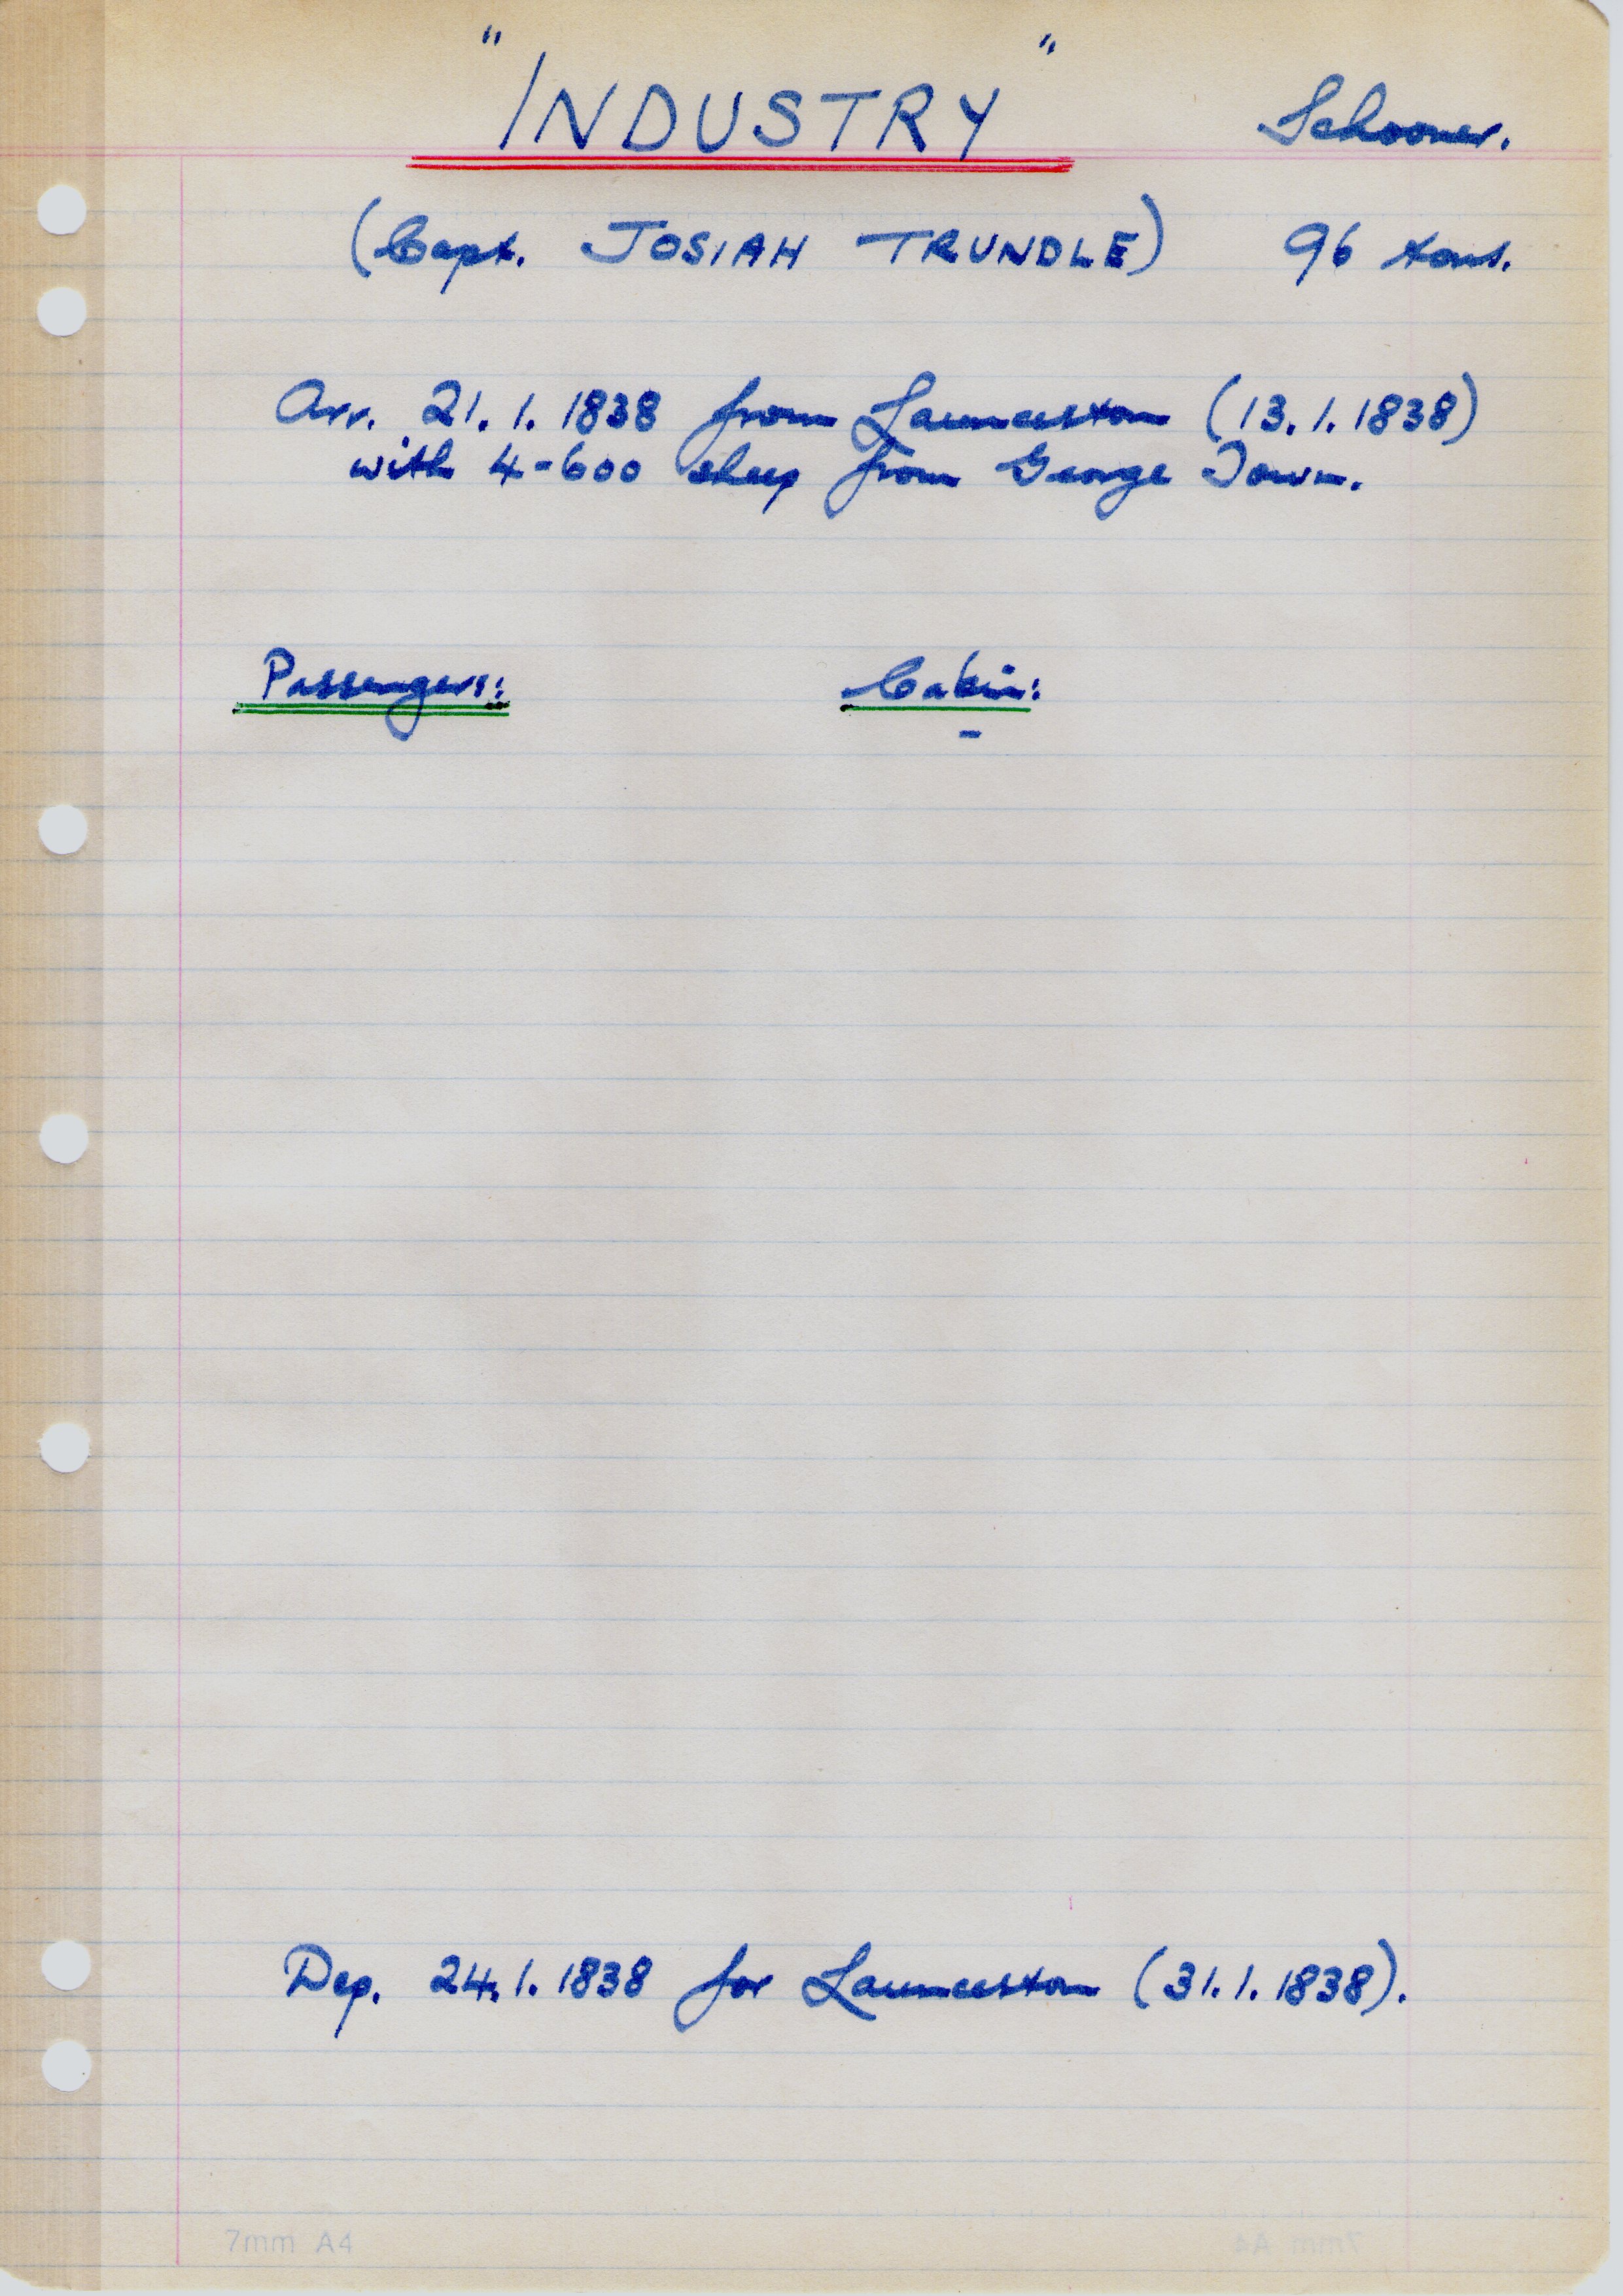 "INDUSTRY" Schooner.
(Capt. JOSIAH TRUNDLE) 96 tons.
Arr. 21.1.1838 from Launceston (13.1.1838)
with 4-600 sheep from George Town.
Passengers: Cabin:
-
Dep. 24.1.1838 for Launceston (31.1.1838).
7mm A4